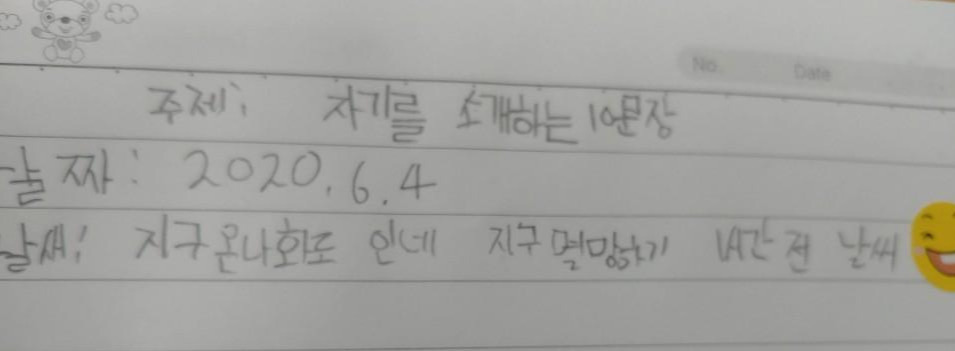 No. Date
주제: 자기를 소개하는 10문장
날짜: 2020. 6. 4
날새: 지구온나화도 인데 지구멸망하기 1시간 전 날씨